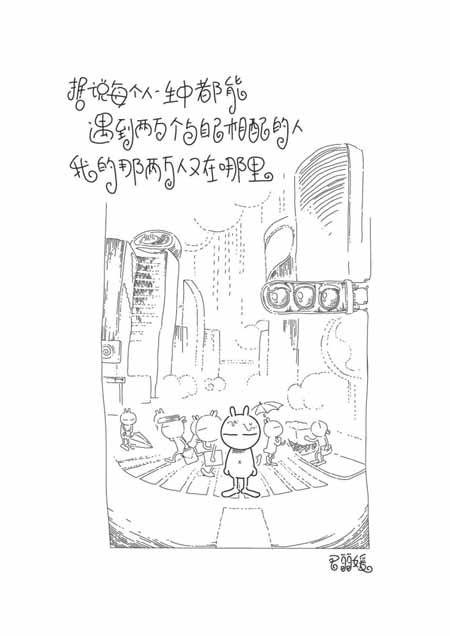 据说每个人一生中都能
遇到两万个与自己相配的人
我的那两万人又在哪里